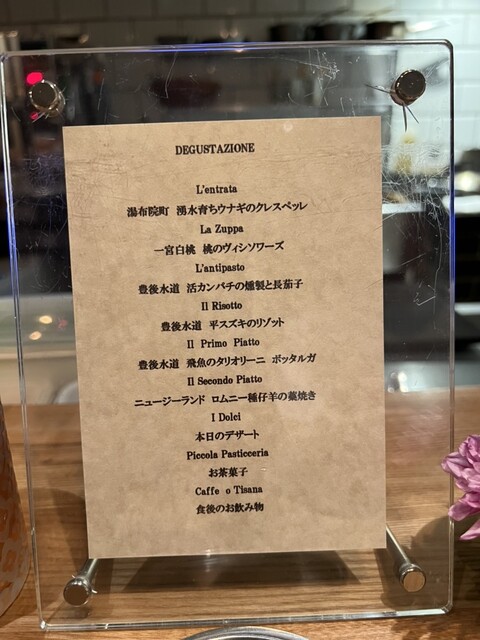 DEGUSTAZIONE
L'entrata
湯布院町 湧水育ちウナギのクレスペッレ
La Zuppa
一宮白桃 桃のヴィシソワーズ
L'antipasto
豊後水道 活カンパチの燻製と長茄子
Il Risotto
豊後水道 平スズキのリゾット
Il Primo Piatto
豊後水道 飛魚のタリオリーニ ボッタルガ
Il Secondo Piatto
ニュージーランド ロムニー種仔羊の藁焼き
I Dolci
本日のデザート
Piccola Pasticceria
お茶菓子
Caffe o Tisana
食後のお飲み物